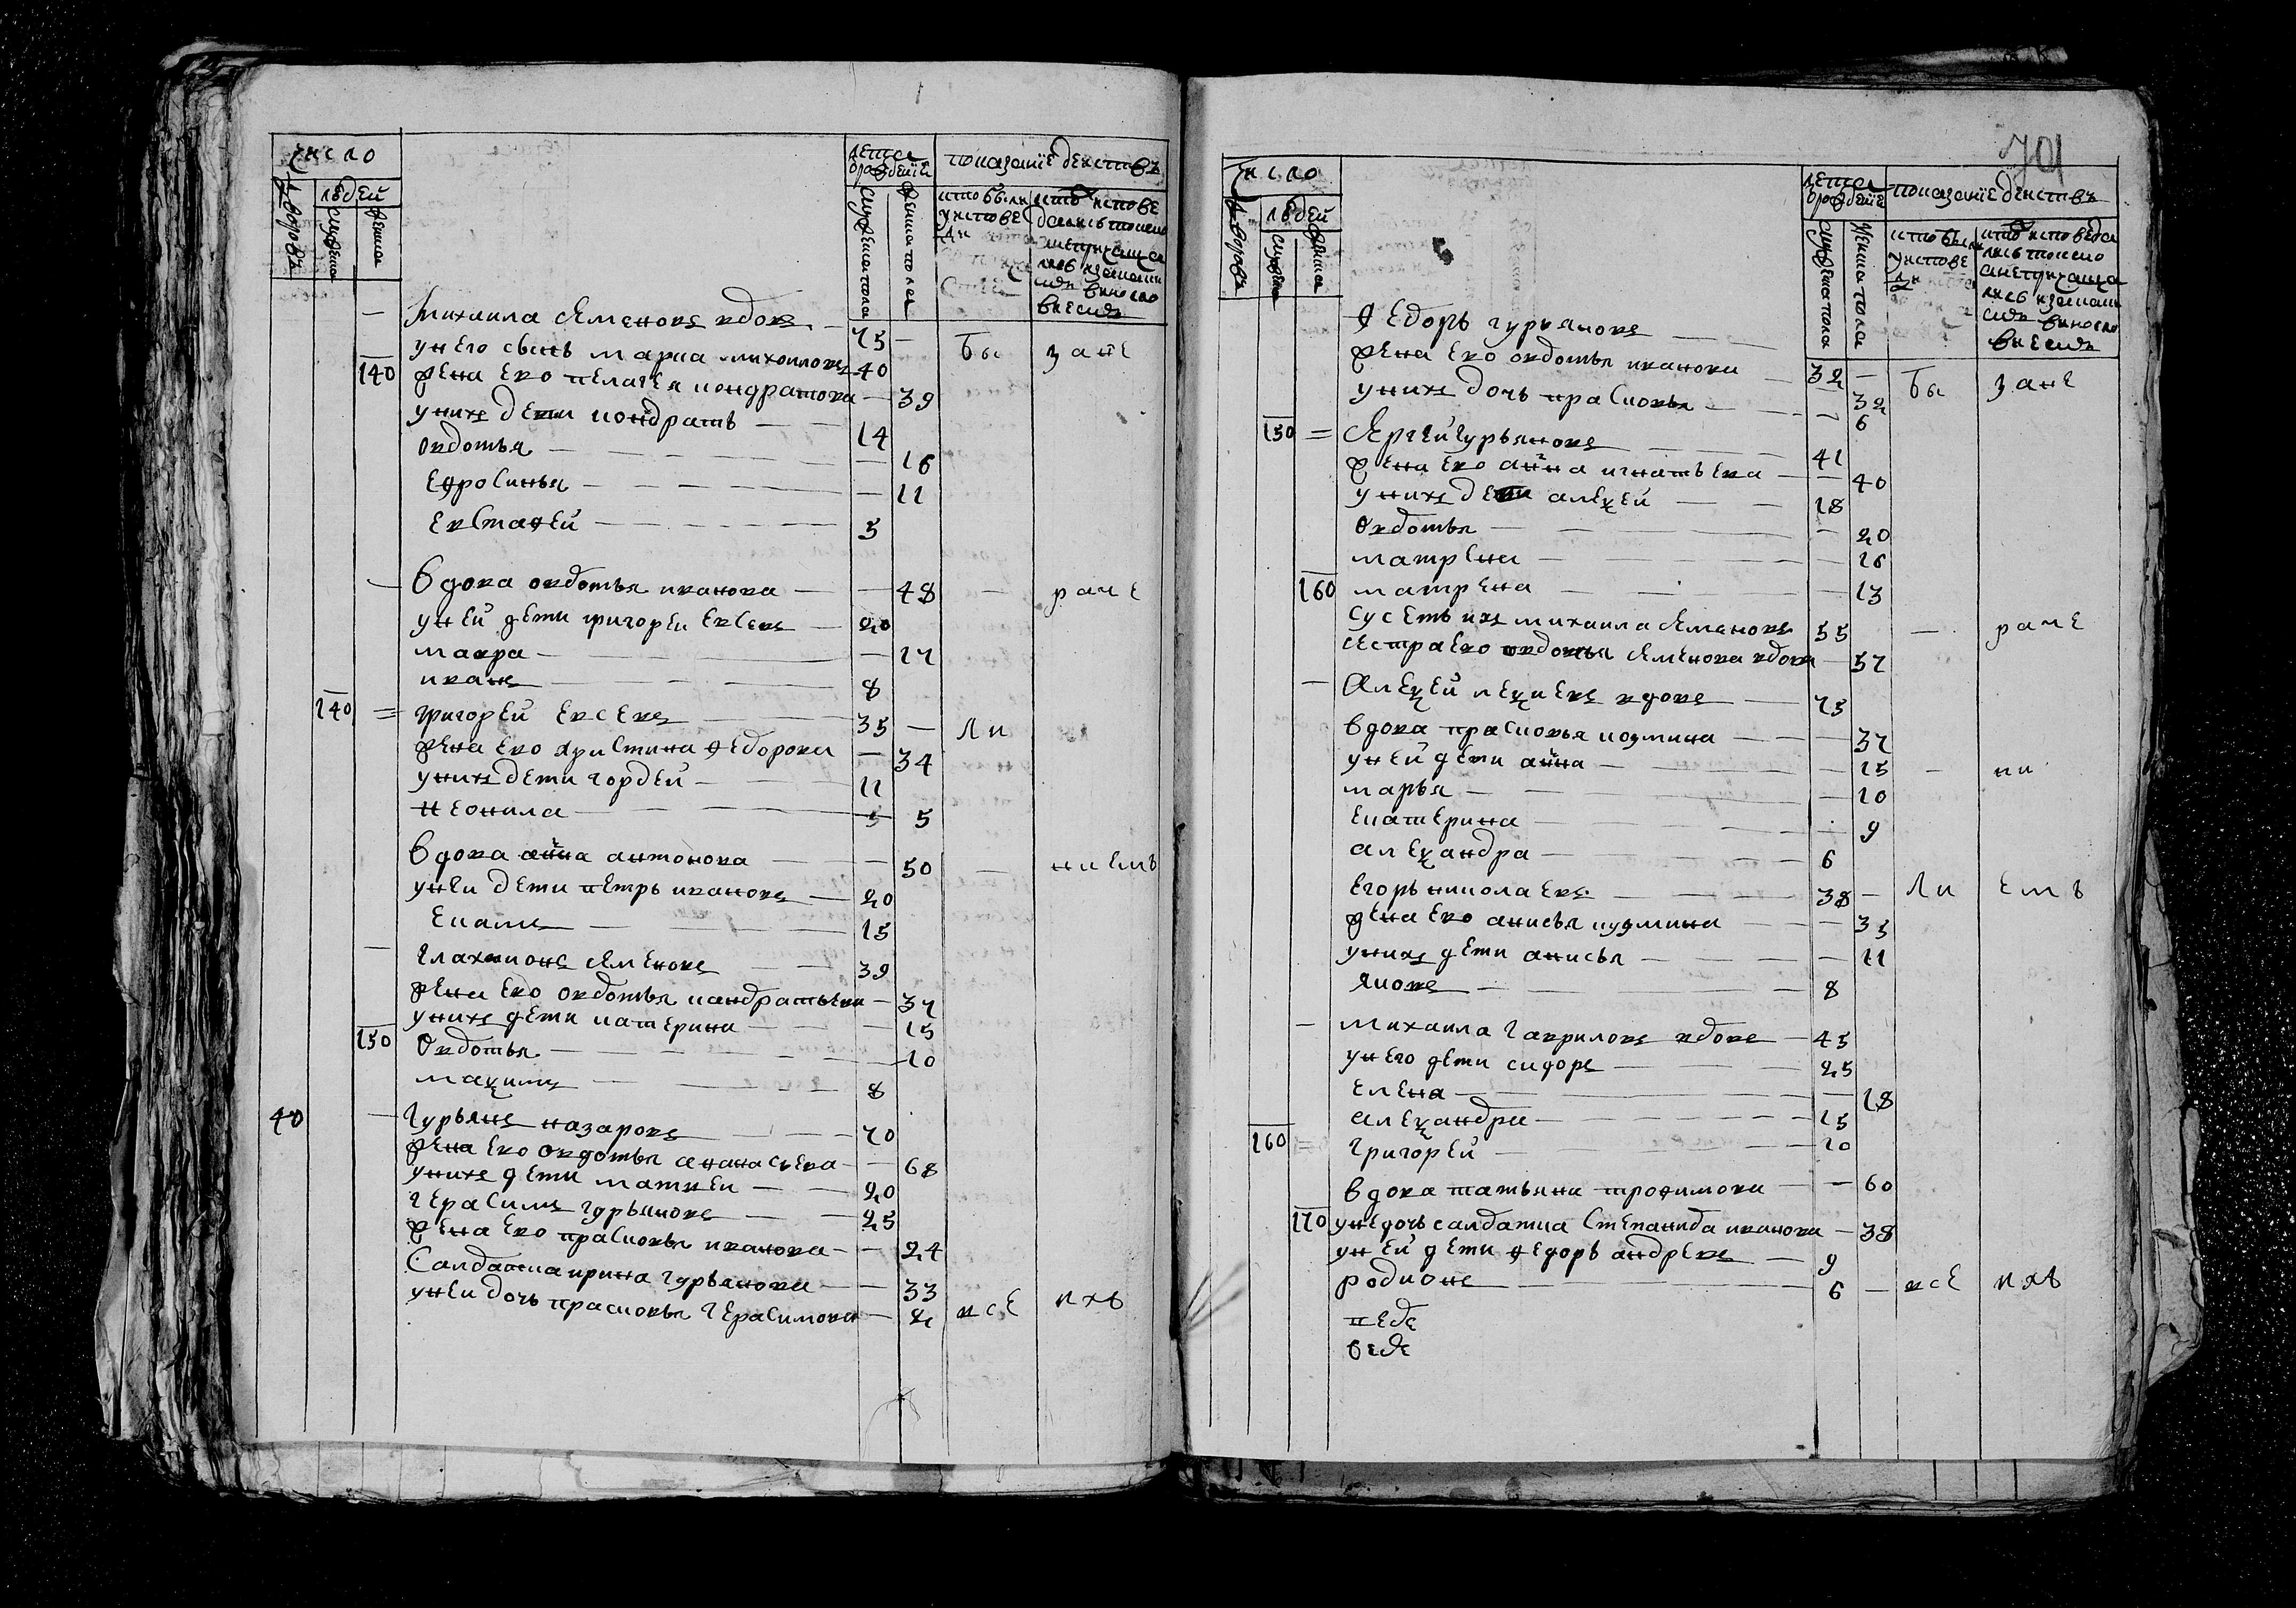 число
людей
дворовъ
мужеска
женска
лета
ѿрождениѧ
мужеска пола
женска пола
показание действъ
кто были
уисповеди
кто исповедались токмо
анепричащались изакаким
виною
михаила семеновъ вдовъ 75 — бы зане
у него сынъ марка михаиловъ 40
140 жена ево пелагея кондратова — 39
у нихъ дети кондрать 14
овдотья — 16
ефросинья — 11
евстафей 5
вдова овдотья иванова — 48 — раче
у ней дети григореи евсевъ 20
мавра — 17
иванъ 8
140 григорей евсевъ 35 — ли
жена ево христина федорова — 34
у нихъ дети гордей 11
неонила 5 5
вдова анна антонова — 50 — ниемъ
у неи дети петръ ивановъ 20
екимъ 15
галахтионъ семеновъ 39
жена ево овдотья кандратьева — 37
у нихъ дети катерина — 15
150 овдотья — 10
маѯимъ 8
40 гурьянъ назаровъ 70
жена ево овдотья ананасьева — 68
у нихъ дети матвеи 20
герасимъ гурьяновъ 25
жена ево прасковья иванова — 24
салдатка ирина гурьянова — 33
у неи дочь прасковья герасимова — 2 все ихъ
701
число
людей
дворовъ
мужеска
женска
лета
ѿрождение
мужеска пола
женска пола
показание действъ
кто были
уисповеди
кто исповедались токмо
анепричаща
лись изакаким
виною
федоръ гурьяновъ 32 — бы зане
жена ево овдотья иванова — 32
у нихъ дочь прасковья — 6
150 сергей гурьяновъ 41
жена ево анна игнатьева — 40
у нихъ дети алеѯей 18
овдотья — 20
матрена — 16
160 матрена — 13
суседъ ихъ михаила семеновъ 55 — раче
сестра ево овдотья семенова вдова — 57
алеѯей леѯиевъ вдовъ 75
вдова прасковья козмина — 37
у ней дети анна — 15 — ни
марья — 10
екатерина — 9
алеѯандра 6
егоръ николаевъ 38 — ли емъ
жена ево анисья кузмина — 35
у нихъ дети анисья — 11
яковъ 8
михаила гаврилов вдовъ 45
у него дети сидоръ 25
елена — 18
алеѯандра 15
160 григорей 10
вдова татьяна трофимова — 60
170 у не дочь салдатка степанида иванова — 38
у ней дети федоръ андревъ 9
родионъ 6 — все ихъ